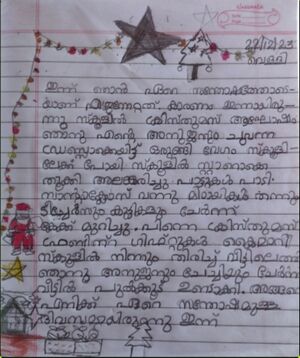 22/12/23
വെള്ളി
ഇന്ന് ഞാൻ ഏറെ സന്തോഷത്തോടെ-
യാണ് എണീറ്റത്. കാരണം ഇന്നായിരു-
ന്നു സ്കൂളിൽ ക്രിസ്തുമസ് ആഘോഷം
ഞാനു എന്റെ അനിയനും ചുവന്ന
ഡ്രസ്സൊക്കെയിട്ട് ഒരുങ്ങി വേഗം സ്കൂളി-
ലേക്ക് പോയി. സ്കൂളിൽ സ്റ്റാറൊക്കെ
തൂക്കി അലങ്കരിച്ചു പാട്ടുകൾ പാടി.
സാന്റാക്ലോസ് വന്നു മിഠായികൾ തന്നു.
ടീച്ചേർസും കുട്ടികളും ചേർന്ന്
കേക്ക് മുറിച്ചു. പിന്നെ ക്രിസ്തുമസ്
ഫ്രണ്ടിന് ഗിഫ്റ്റുകൾ കൈമാറി
സ്കൂളിൽ നിന്നും തിരിച്ച് വീട്ടിലെത്തി
ഞാനു അനുജനും ചേച്ചിയും ചേർന്ന
വീട്ടിൽ പുൽക്കൂട് ഉണ്ടാക്കി. അങ്ങനെ
എനിക്ക് ഏറെ സന്തോഷമുള്ള
ദിവസമായിരുന്നു ഇന്ന്